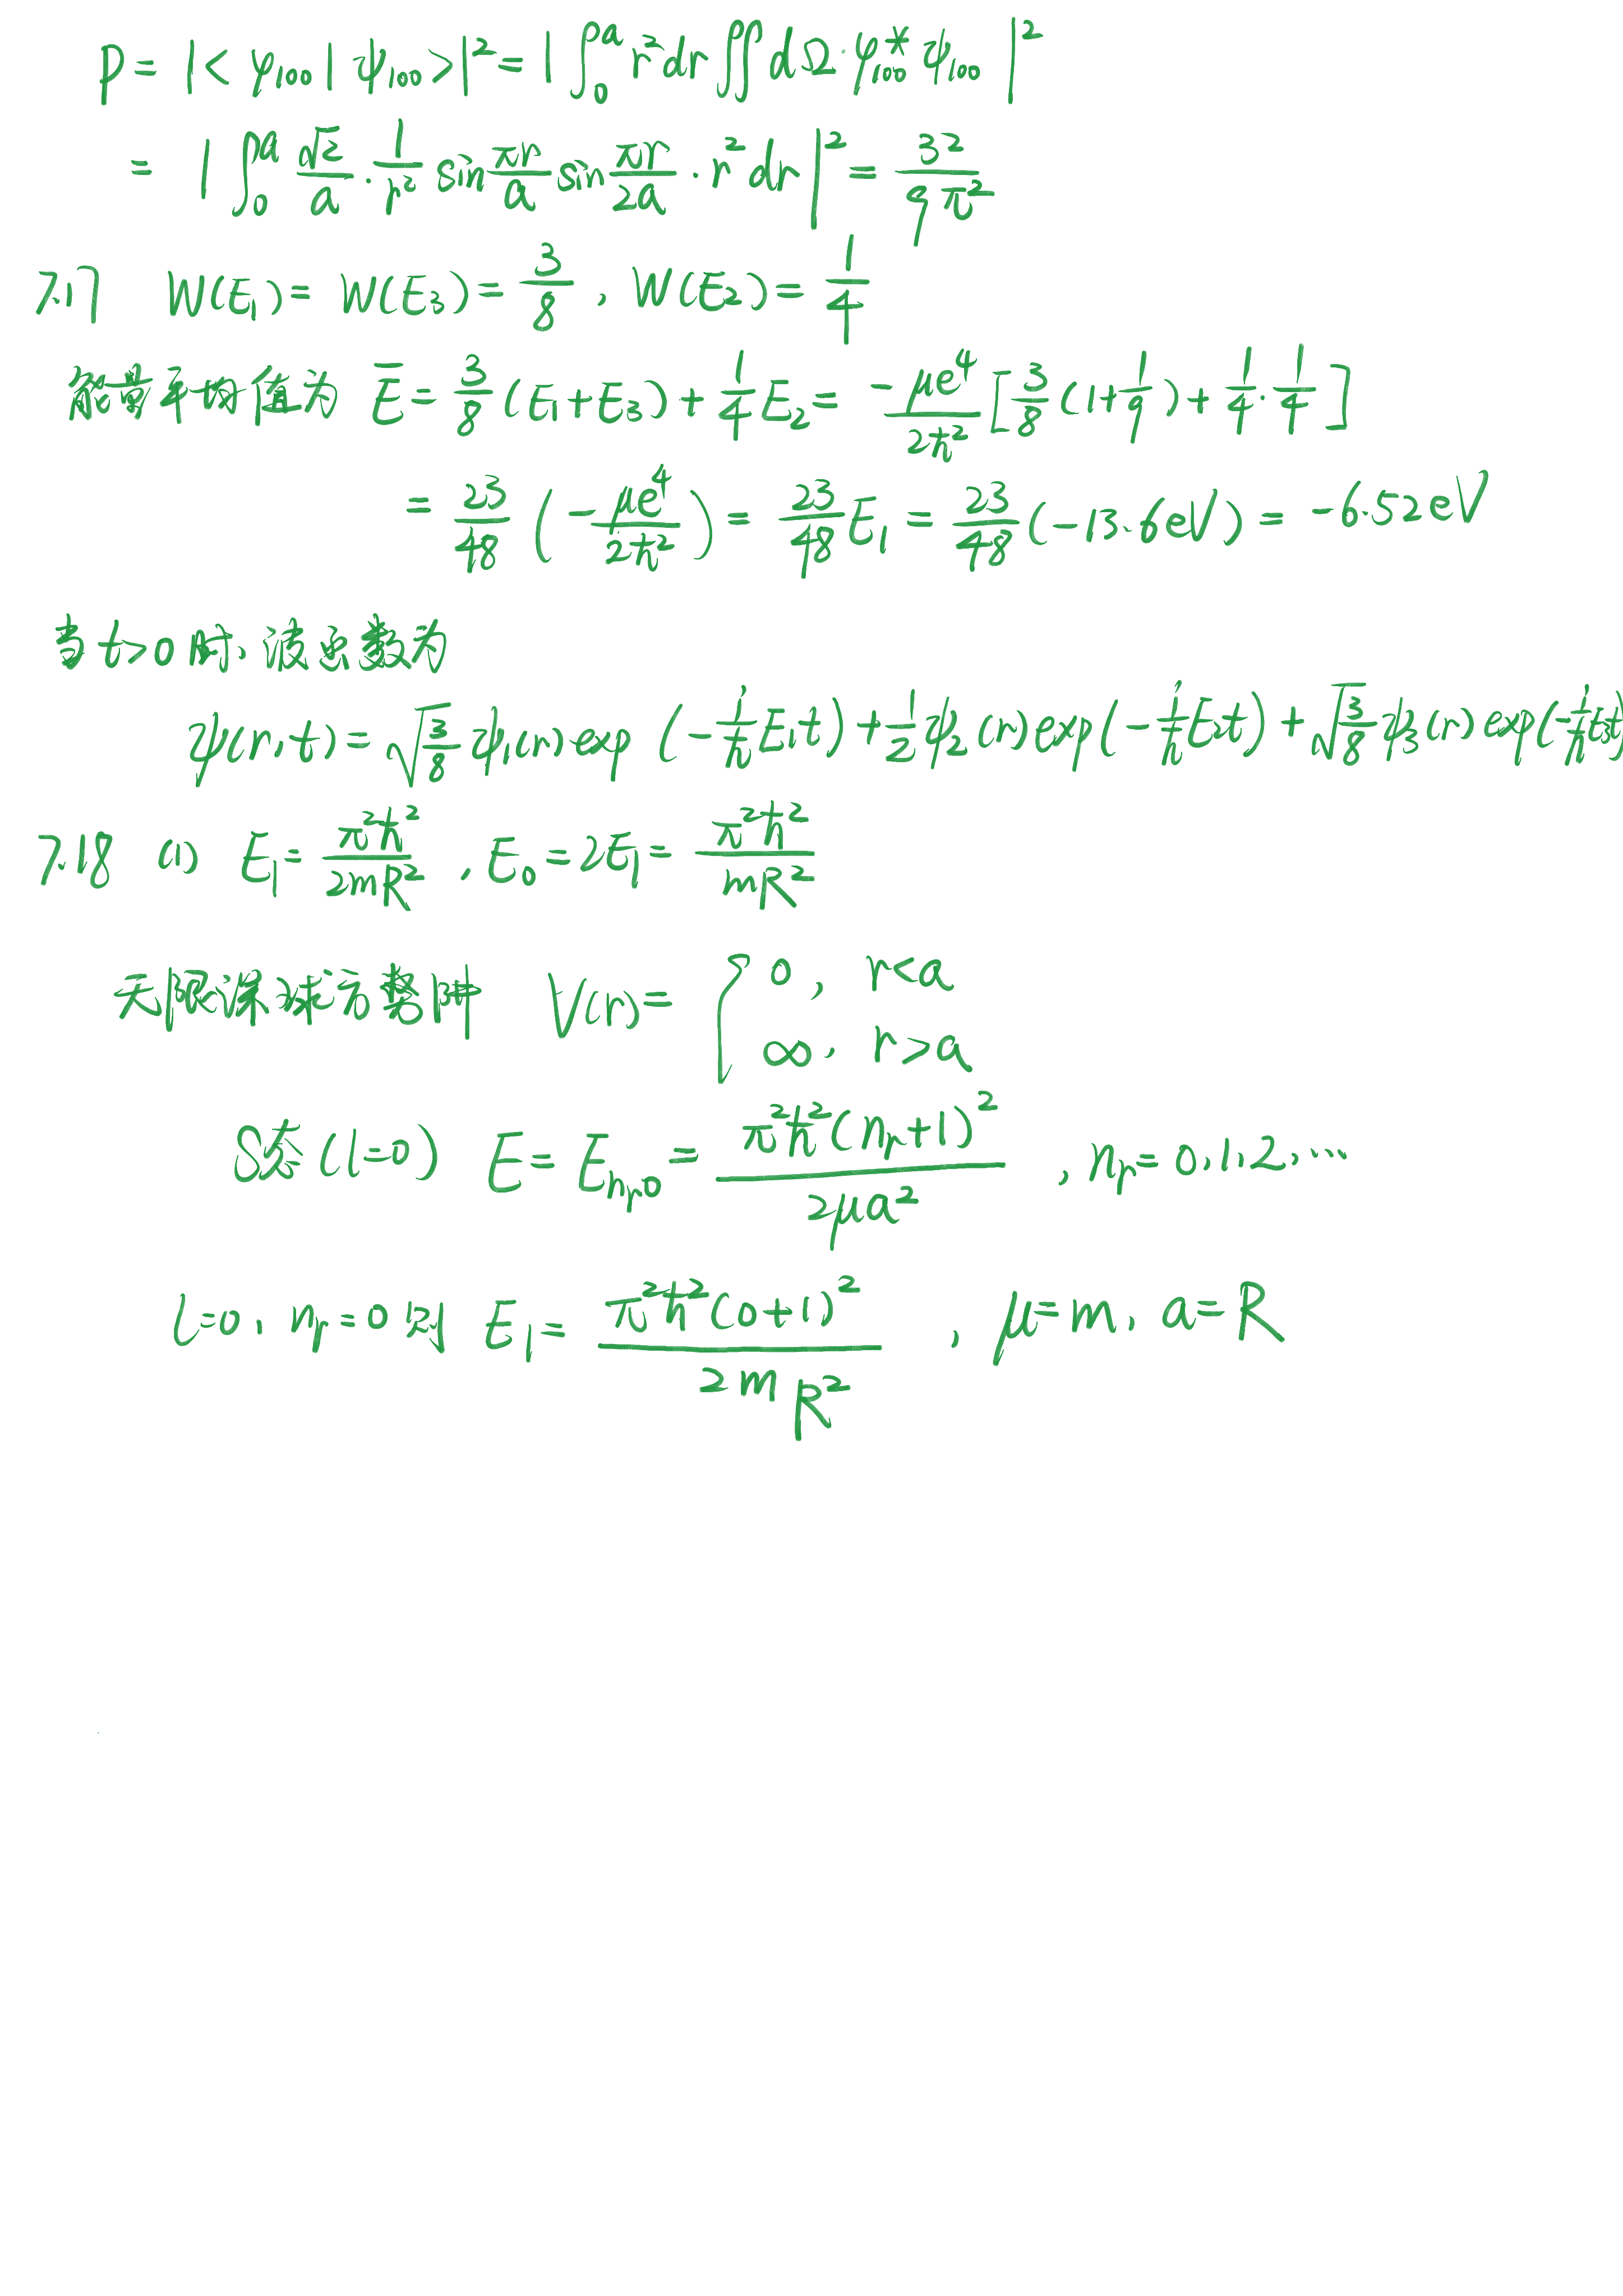 P = |<φ₁₀₀|ψ₁₀₀>|² = |∫₀ᵃ r²dr ∬ dΩ·φ*₁₀₀ ψ₁₀₀|²
= |∫₀ᵃ √2/a · 1/r² sin πr/a sin πr/2a · r² dr|² = 32/9π²
7.17 W(E₁) = W(E₃) = 3/8 , W(E₂) = 1/4
能量平均值为 Ē = 3/8 (E₁+E₃) + 1/4 E₂ = -μe⁴/2ħ² [3/8 (1+1/9) + 1/4 · 1/4]
= 23/48 (-μe⁴/2ħ²) = 23/48 E₁ = 23/48 (-13.6eV) = -6.52eV
当t>0时、波函数为
ψ(r,t) = √(3/8) ψ₁(r) exp (-i/ħ E₁t) + 1/2 ψ₂(r) exp (-i/ħ E₂t) + √(3/8) ψ₃(r) exp (-i/ħ E₃t)
7.18 (1) E₁ = π²ħ²/2mR² , E₀ = 2E₁ = π²ħ²/mR²
无限深球方势阱 V(r) = { 0, r<a
∞, r>a
S态(l=0) E = Eₙᵣ₀ = π²ħ²(nᵣ+1)²/2μa² , nᵣ = 0,1,2,…
l=0, nᵣ=0 则 E₁ = π²ħ²(0+1)²/2mR² , μ=m, a=R